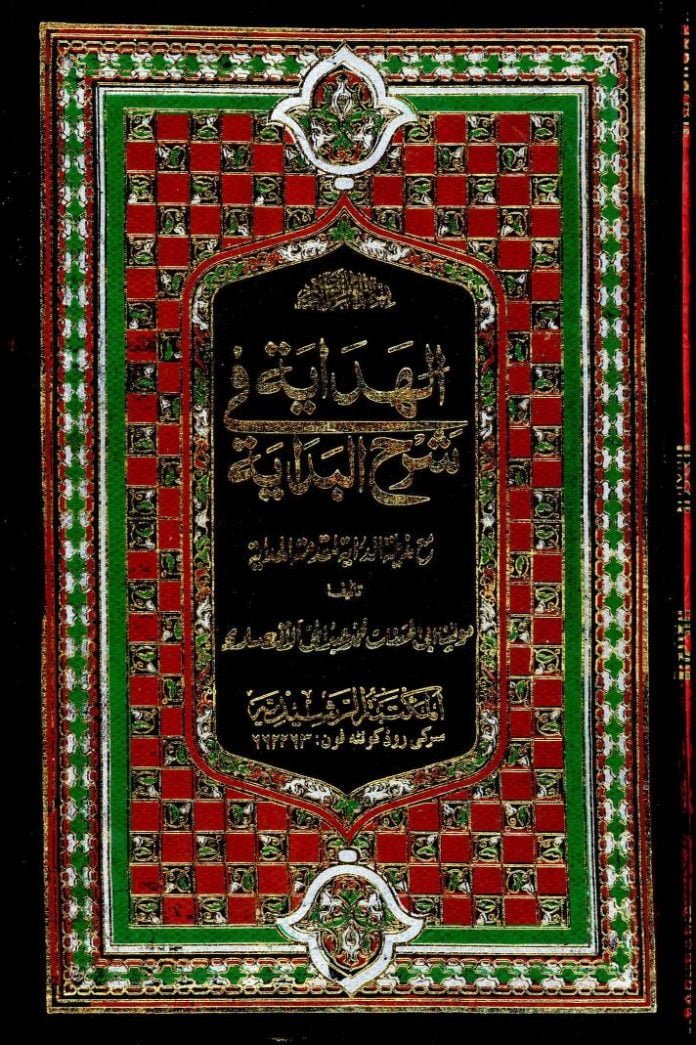 بسم الله الرحمن الرحيم
الهَدَايَة في
شَرْح البَدَايَة
مع مذيلة الدراية لمقدمة الهداية
تاليف
مولينا ابى الحسنات محمد عبد الحى الانصارى
المكتبة الرشيدية
سركى روڈ كوئٹه فون: